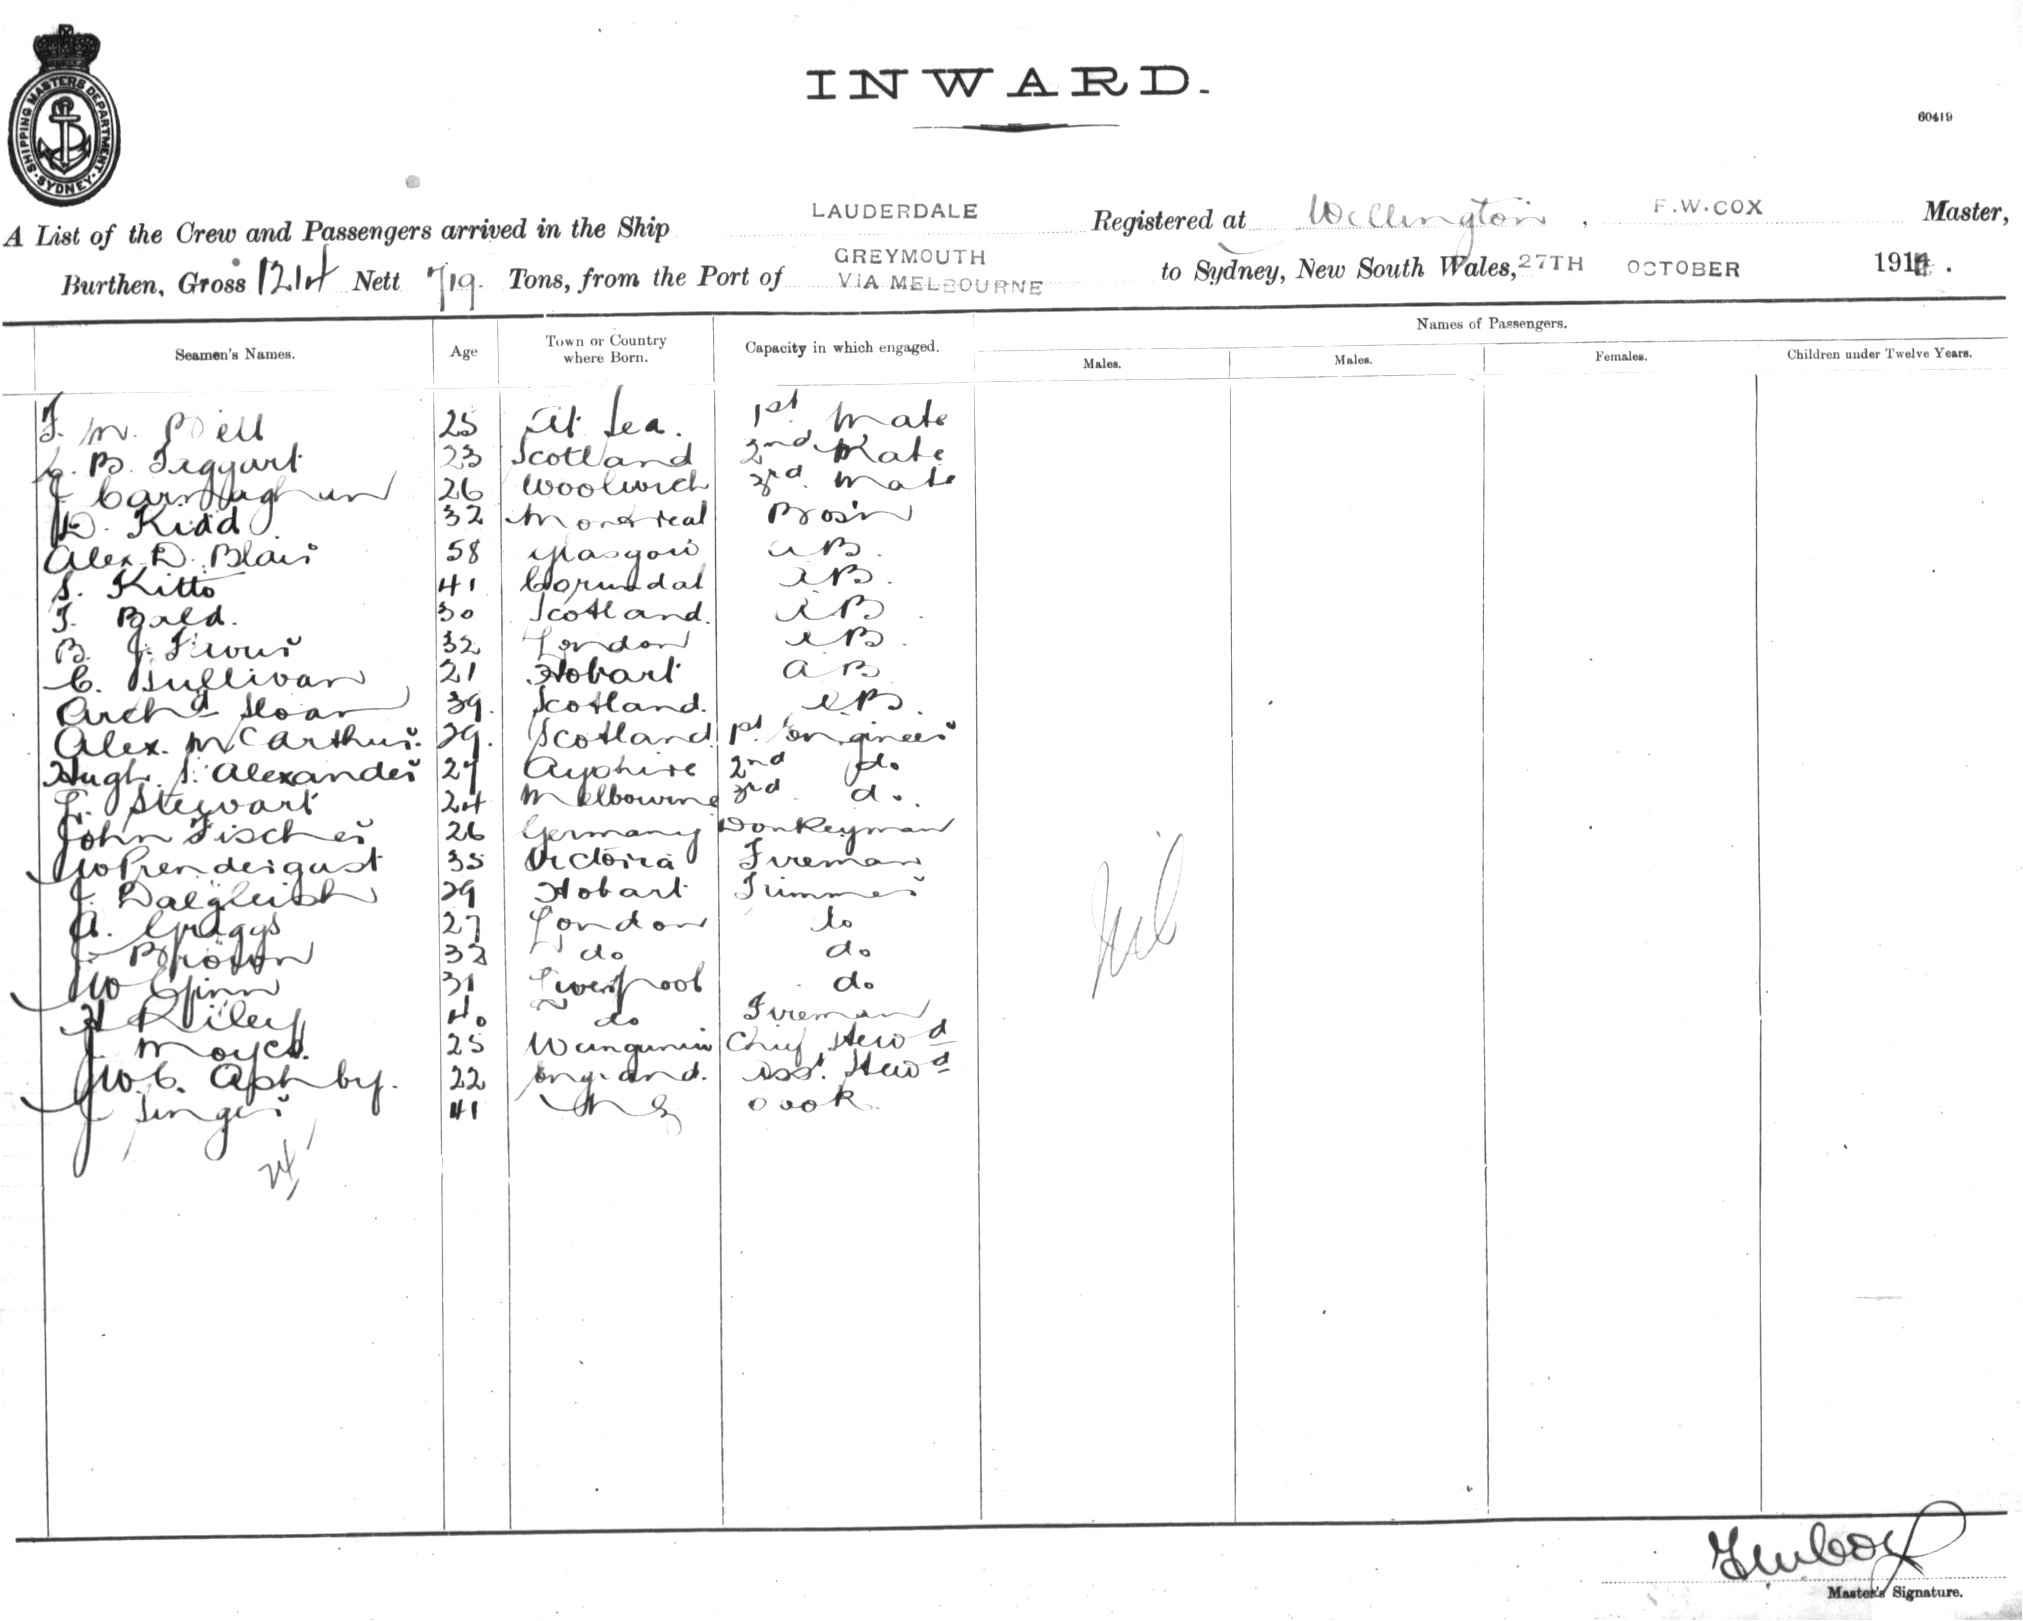 SHIPPING MASTERS DEPARTMENT. SYDNEY.
INWARD.
60419
A List of the Crew and Passengers arrived in the Ship LAUDERDALE Registered at Wellington, F.W.COX Master,
Burthen, Gross 1214 Nett 719. Tons, from the Port of GREYMOUTH VIA MELBOURNE to Sydney, New South Wales, 27TH OCTOBER 191
Names of Passengers.
Seamen's Names. Age Town or Country where Born. Capacity in which engaged. Males. Males. Females. Children under Twelve Years.
M. Bell 25 At Sea. 1st Mate
B. Teggart 23 Scotland 2nd Mate
J. 26 Woolwich 3rd Mate
D. Kidd 32 Montreal Bos'n
Alex. D. Blair 58 Glasgow AB.
S. Kitto 41 AB.
Bald. 30 Scotland. AB.
B. J. 32 London AB.
C. Sullivan 21 Hobart AB
Archd Sloan 39. Scotland. AB.
Alex. McArthur. 29. Scotland 1st Engineer
Hugh S. Alexander 27 Ayshire 2nd do.
Stewart 24 Melbourne 3rd do.
John Fischer 26 Germany Donkeyman
W Prendergast 35 Victoria Fireman
J. Dalgleish 29 Hobart Trimmer
A. Griggs 27 London do
J. Brown 32 do do
W Ginn 31 Liverpool do
H Riley 40 do Fireman
J. Moyes. 25 Chief Stewd
W.C. Ashby. 22 England. Asst. Stewd
J Singer 41 N Z Cook.
Nil
24
F W Cox
Master's Signature.